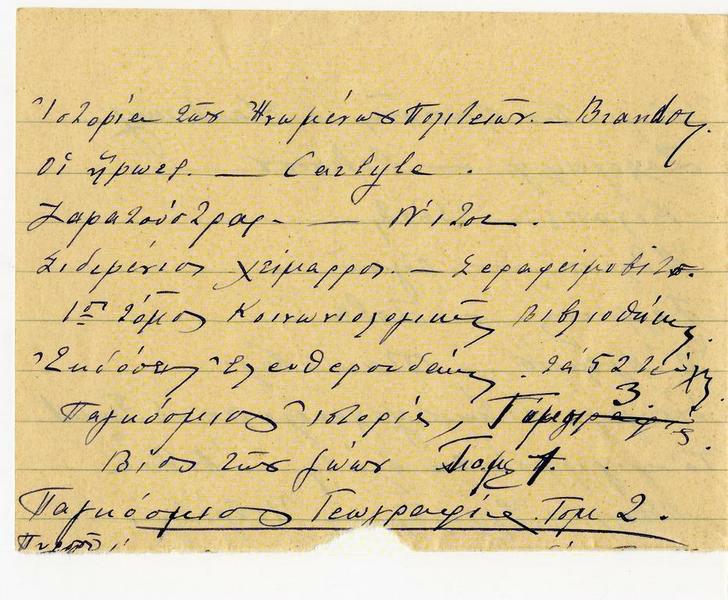 Ἱστορία τῶν Ἡνωμένων Πολιτειῶν. — Brandon
Οἱ ἥρωες. — Carlyle.
Ζαρατούστρας — Νίτσε.
Σιδερένιος χείμαρρος. — Σεραφείμοβιτς.
1ος τόμος Κοινωνιολογικῆς Βιβλιοθήκης
Ἐκδόσεις Ἐλευθερουδάκης. τά 52 τεύχη
Παγκόσμιος Ἱστορία, 3.
Βίος τῶν ζώων Τομς 1.
Παγκόσμιος Γεωγραφία. Τομ 2.